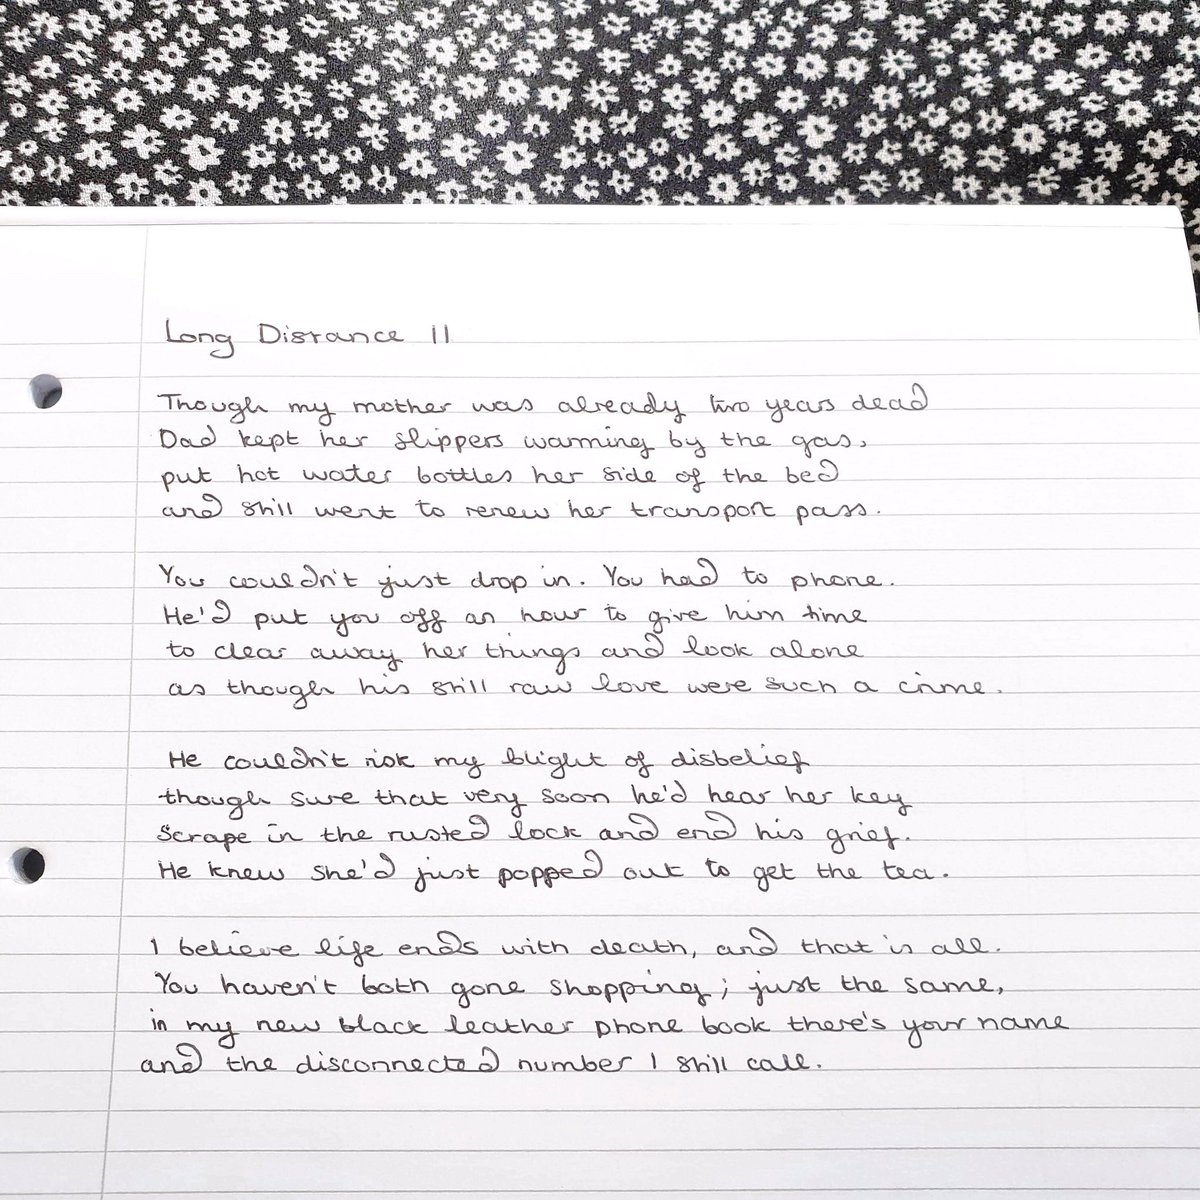 Long Distance II
Though my mother was already two years dead
Dad kept her slippers warming by the gas,
put hot water bottles her side of the bed
and still went to renew her transport pass.
You couldn't just drop in. You had to phone.
He'd put you off an hour to give him time
to clear away her things and look alone
as though his still raw love were such a crime.
He couldn't risk my blight of disbelief
though sure that very soon he'd hear her key
scrape in the rusted lock and end his grief.
He knew she'd just popped out to get the tea.
I believe life ends with death, and that is all.
You haven't both gone shopping; just the same,
in my new black leather phone book there's your name
and the disconnected number I still call.